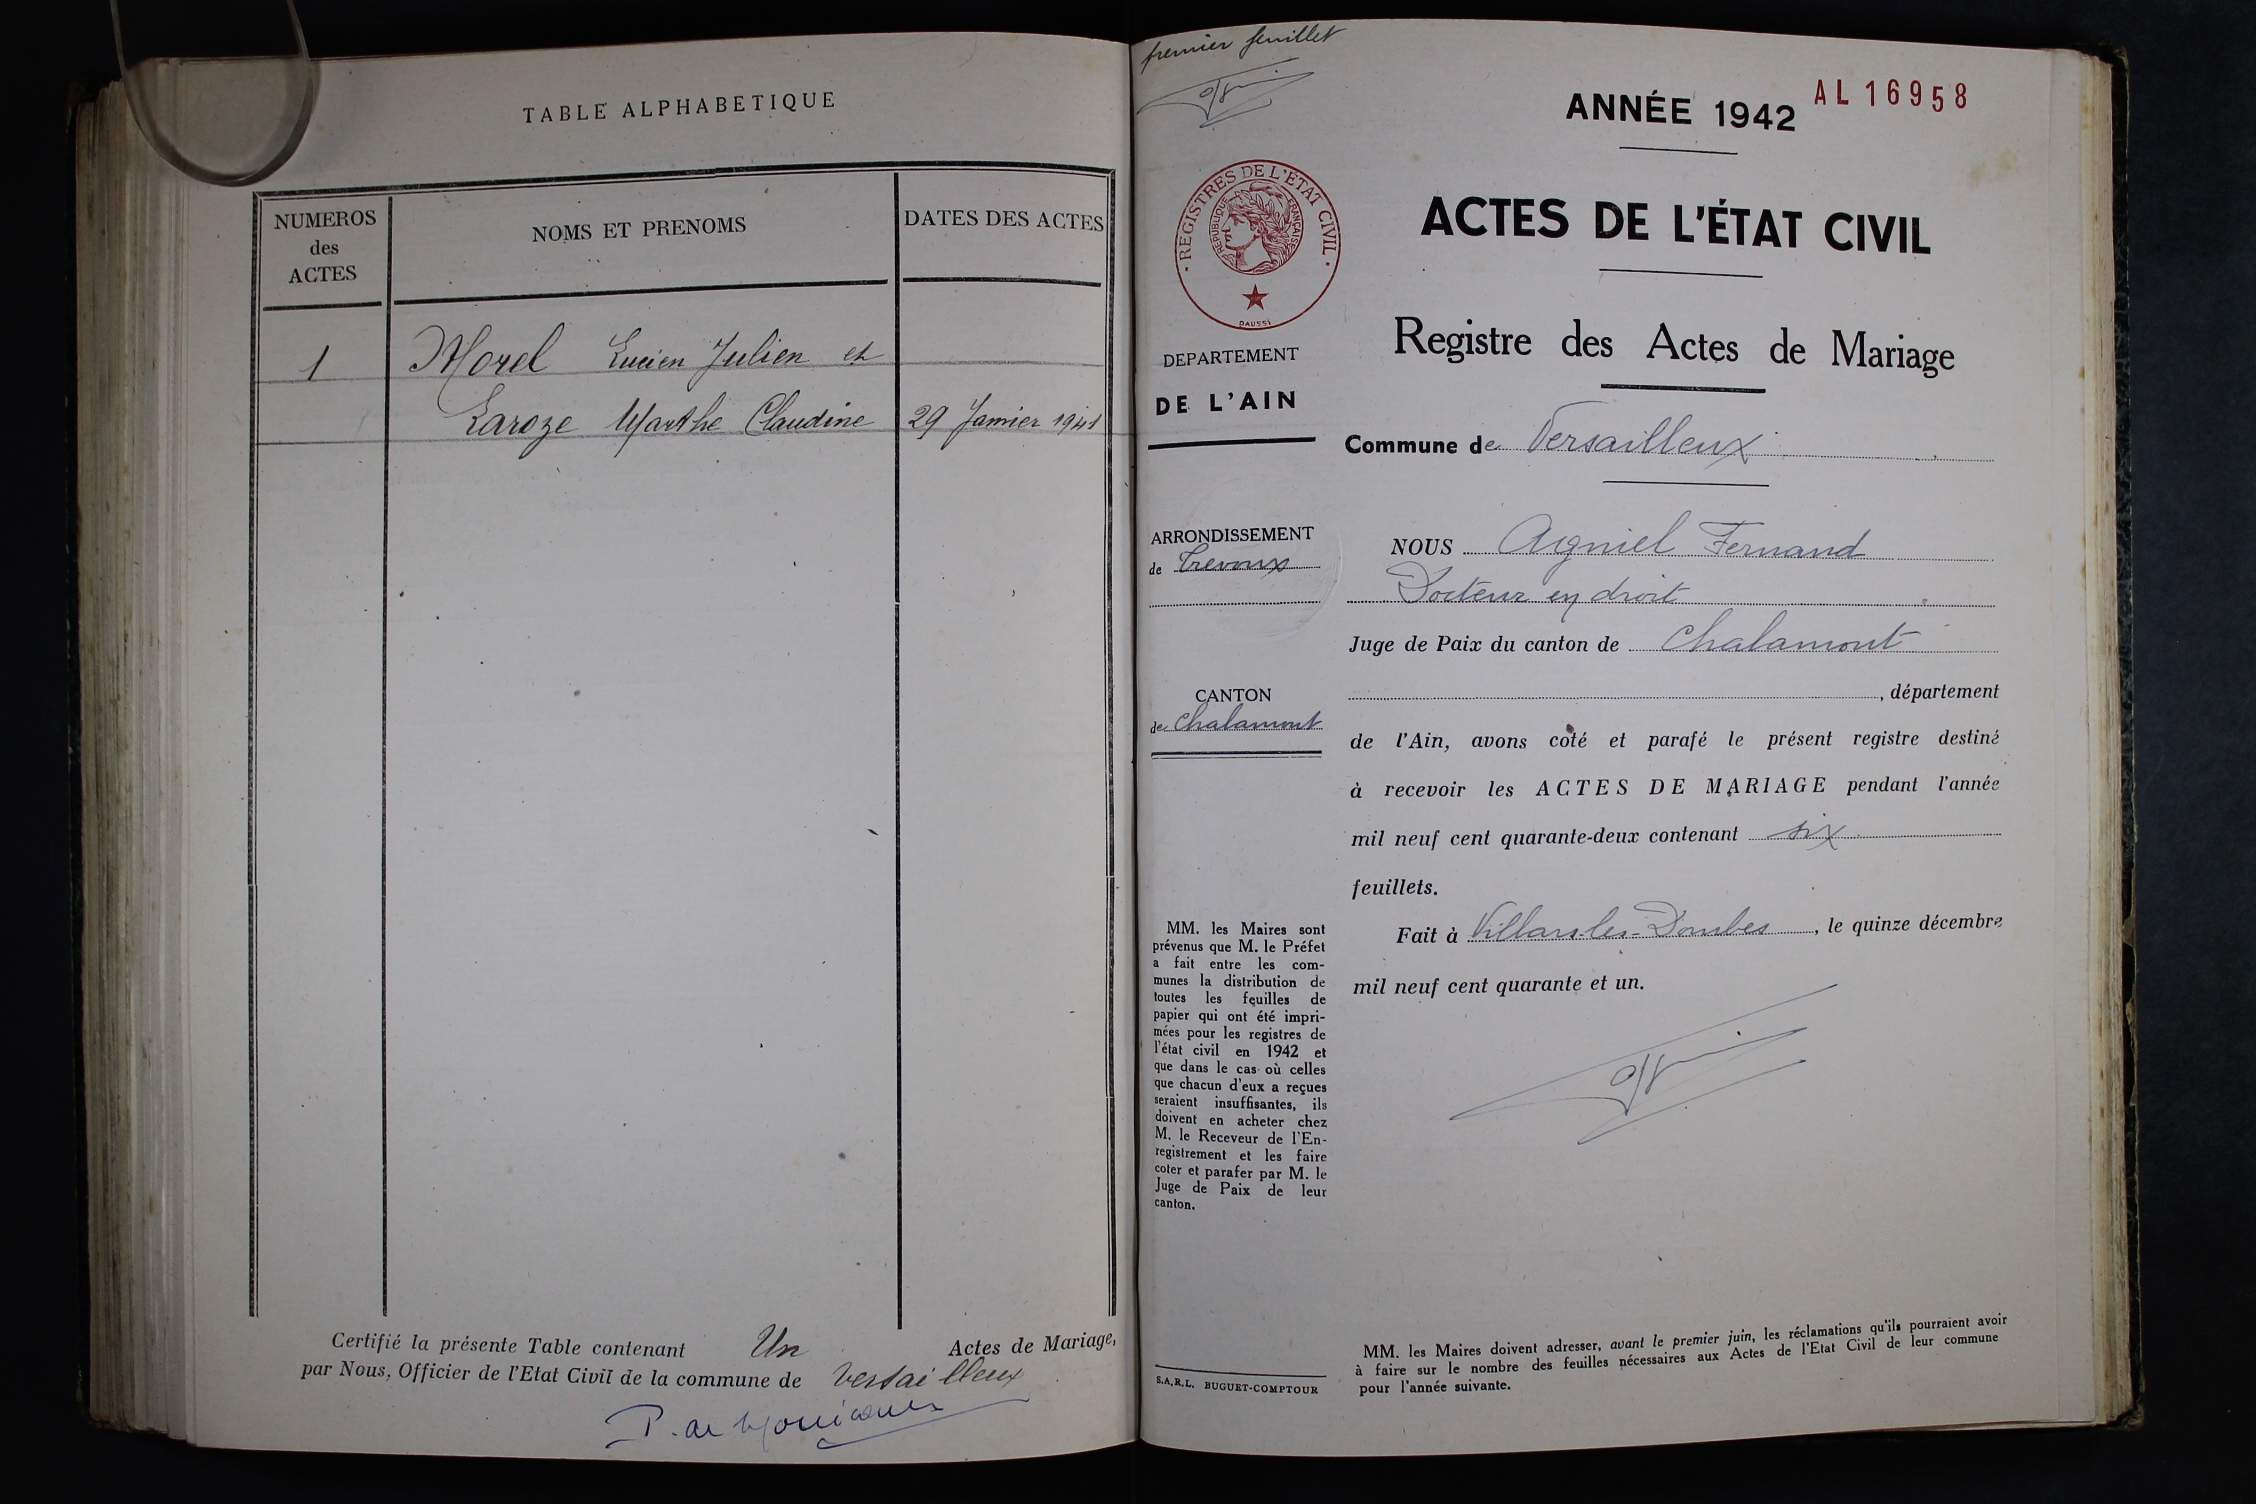 TABLE ALPHABETIQUE
NUMEROS
des
ACTES
NOMS ET PRENOMS
DATES DES ACTES
1 Morel Lucien Julien et
Laroze Marthe Claudine 29 Janvier 1941
Certifié la présente Table contenant Un Actes de Mariage,
par Nous, Officier de l'Etat Civil de la commune de Versailleux
P. de
premier feuillet
ANNÉE 1942
AL 16958
REGISTRES DE L'ETAT CIVIL
REPUBLIQUE FRANÇAISE
DAUSSI
ACTES DE L'ÉTAT CIVIL
Registre des Actes de Mariage
DEPARTEMENT
DE L'AIN
Commune de Versailleux
ARRONDISSEMENT
de Trévoux
CANTON
de Chalamont
NOUS Agniel Fernand
Docteur en droit
Juge de Paix du canton de Chalamont
, département
de l'Ain, avons coté et parafé le présent registre destiné
à recevoir les ACTES DE MARIAGE pendant l'année
mil neuf cent quarante-deux contenant six
feuillets.
Fait à Villars-les-Dombes, le quinze décembre
mil neuf cent quarante et un.
MM. les Maires sont
prévenus que M. le Préfet
a fait entre les com-
munes la distribution de
toutes les feuilles de
papier qui ont été impri-
mées pour les registres de
l'état civil en 1942 et
que dans le cas où celles
que chacun d'eux a reçues
seraient insuffisantes, ils
doivent en acheter chez
M. le Receveur de l'En-
registrement et les faire
coter et parafer par M. le
Juge de Paix de leur
canton.
S.A.R.L. BUGUET-COMPTOUR
MM. les Maires doivent adresser, avant le premier juin, les réclamations qu'ils pourraient avoir
à faire sur le nombre des feuilles nécessaires aux Actes de l'Etat Civil de leur commune
pour l'année suivante.